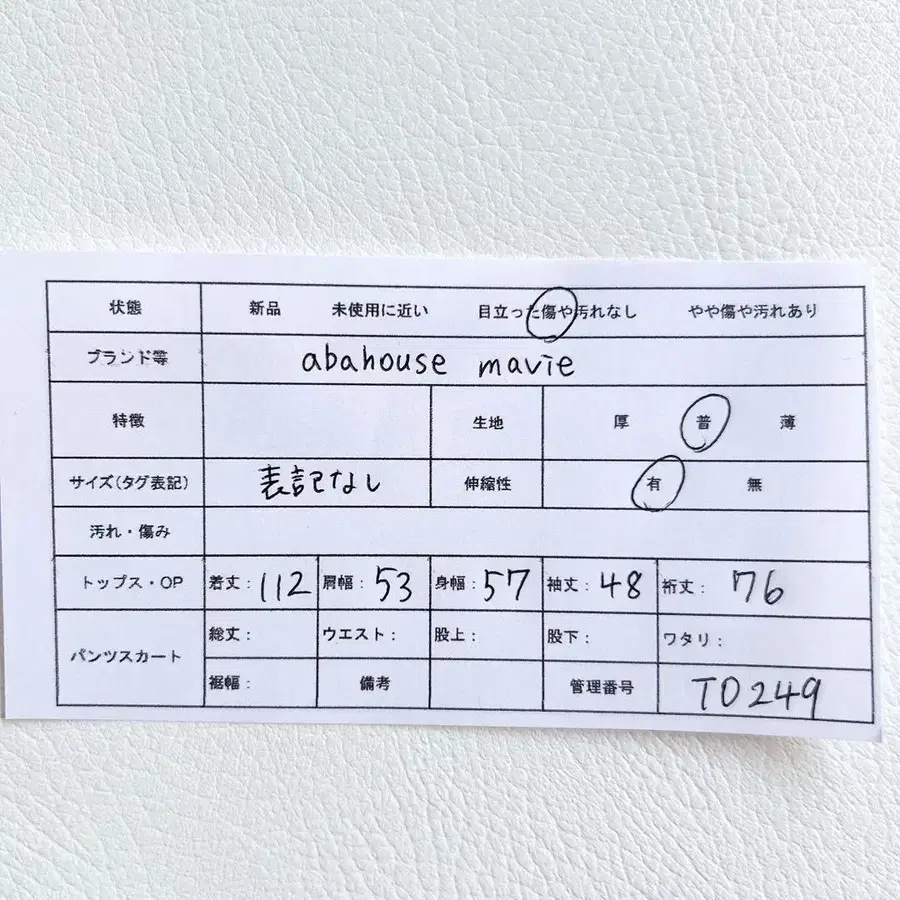 状態 新品 未使用に近い 目立った傷や汚れなし やや傷や汚れあり
ブランド等 abahouse mavie
特徴 生地 厚 普 薄
サイズ(タグ表記) 表記なし 伸縮性 有 無
汚れ・傷み
トップス・OP 着丈: 112 肩幅: 53 身幅: 57 袖丈: 48 裄丈: 76
パンツスカート 総丈: ウエスト: 股上: 股下: ワタリ:
裾幅: 備考 管理番号 TO249